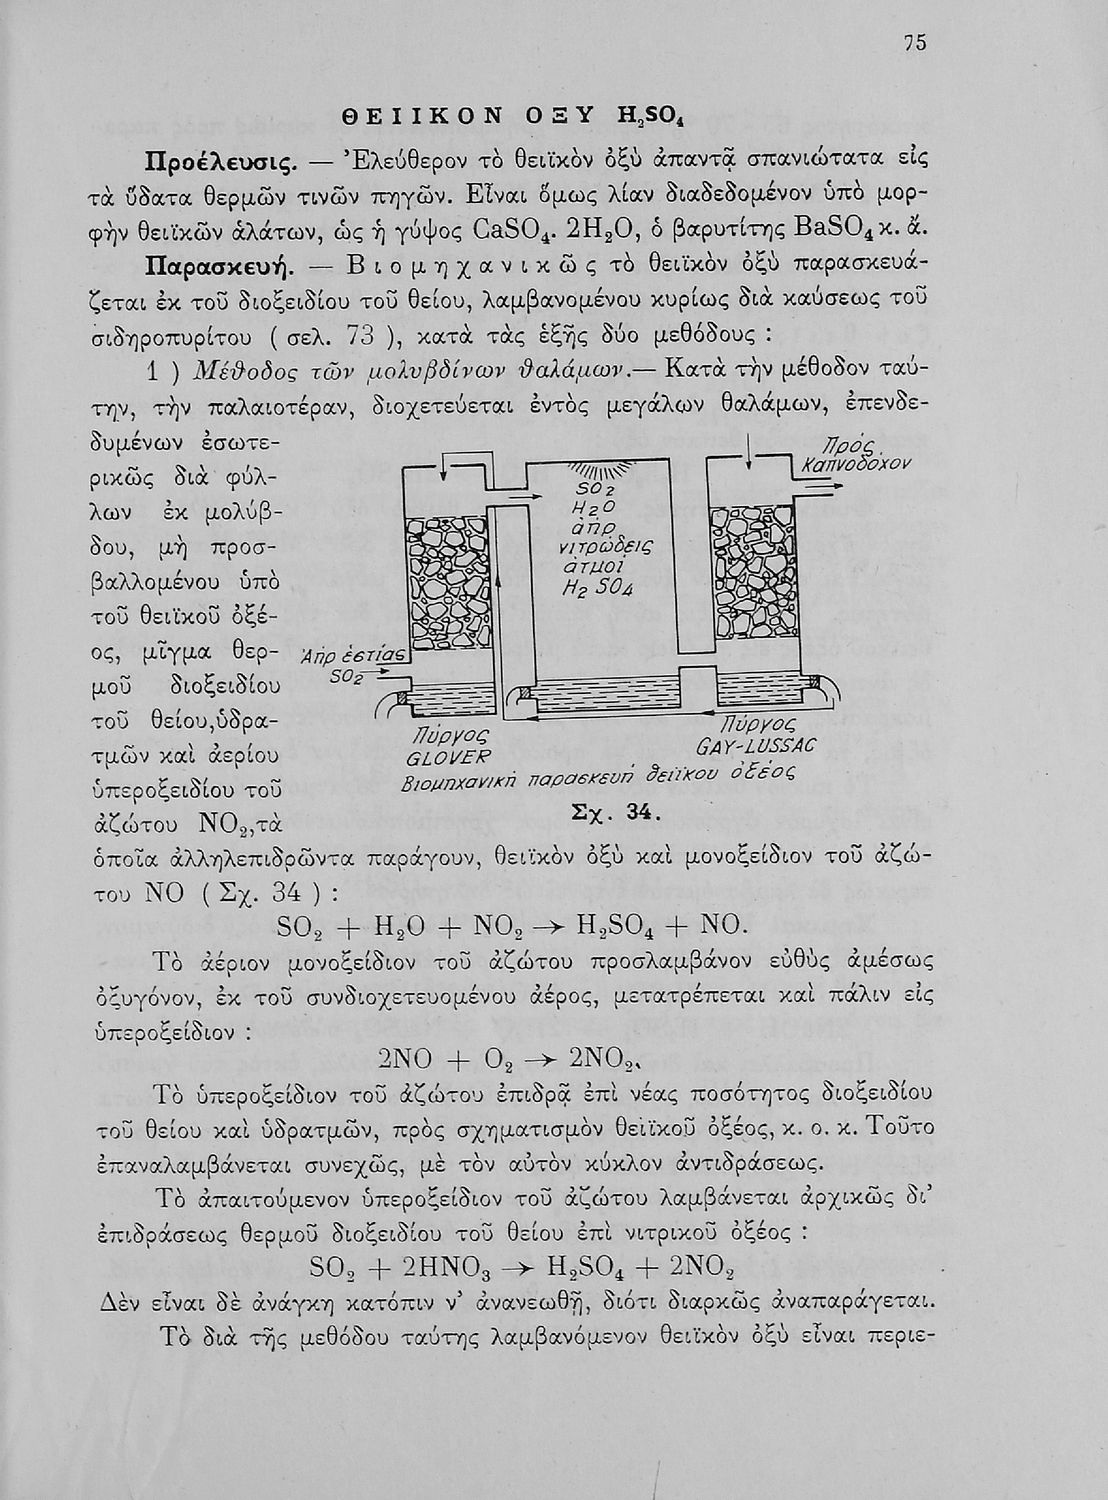 75
ΘΕΙΙΚΟΝ ΟΞΥ H₂SO₄
Προέλευσις. — Ἐλεύθερον τὸ θειϊκὸν ὀξὺ ἀπαντᾷ σπανιώτατα εἰς
τὰ ὕδατα θερμῶν τινῶν πηγῶν. Εἶναι ὅμως λίαν διαδεδομένον ὑπὸ μορ-
φὴν θειϊκῶν ἁλάτων, ὡς ἡ γύψος CaSO₄. 2H₂O, ὁ βαρυτίτης BaSO₄ κ. ἄ.
Παρασκευή. — Βιομηχανικῶς τὸ θειϊκὸν ὀξὺ παρασκευά-
ζεται ἐκ τοῦ διοξειδίου τοῦ θείου, λαμβανομένου κυρίως διὰ καύσεως τοῦ
σιδηροπυρίτου ( σελ. 73 ), κατὰ τὰς ἑξῆς δύο μεθόδους :
1 ) Μέθοδος τῶν μολυβδίνων θαλάμων.— Κατὰ τὴν μέθοδον ταύ-
την, τὴν παλαιοτέραν, διοχετεύεται ἐντὸς μεγάλων θαλάμων, ἐπενδε-
δυμένων ἐσωτε-
ρικῶς διὰ φύλ-
λων ἐκ μολύβ-
δου, μὴ προσ-
βαλλομένου ὑπὸ
τοῦ θειϊκοῦ ὀξέ-
ος, μῖγμα θερ-
μοῦ διοξειδίου
τοῦ θείου,ὑδρα-
τμῶν καὶ ἀερίου
ὑπεροξειδίου τοῦ
ἀζώτου NO₂,τὰ
Πρός
Καπνοδόχον
SO₂
H₂O
ἀὴρ
νιτρώδεις
ἀτμοί
H₂SO₄
Ἀὴρ ἑστίας
SO₂
Πύργος
GLOVER
Πύργος
GAY-LUSSAC
Βιομηχανική παρασκευή θειϊκου ὀξέος
Σχ. 34.
ὁποῖα ἀλληλεπιδρῶντα παράγουν, θειϊκὸν ὀξὺ καὶ μονοξείδιον τοῦ ἀζώ-
του NO ( Σχ. 34 ) :
SO₂ + H₂O + NO₂ → H₂SO₄ + NO.
Τὸ ἀέριον μονοξείδιον τοῦ ἀζώτου προσλαμβάνον εὐθὺς ἀμέσως
ὀξυγόνον, ἐκ τοῦ συνδιοχετευομένου ἀέρος, μετατρέπεται καὶ πάλιν εἰς
ὑπεροξείδιον :
2NO + O₂ → 2NO₂.
Τὸ ὑπεροξείδιον τοῦ ἀζώτου ἐπιδρᾷ ἐπὶ νέας ποσότητος διοξειδίου
τοῦ θείου καὶ ὑδρατμῶν, πρὸς σχηματισμὸν θειϊκοῦ ὀξέος, κ. ο. κ. Τοῦτο
ἐπαναλαμβάνεται συνεχῶς, μὲ τὸν αὐτὸν κύκλον ἀντιδράσεως.
Τὸ ἀπαιτούμενον ὑπεροξείδιον τοῦ ἀζώτου λαμβάνεται ἀρχικῶς δι’
ἐπιδράσεως θερμοῦ διοξειδίου τοῦ θείου ἐπὶ νιτρικοῦ ὀξέος :
SO₂ + 2HNO₃ → H₂SO₄ + 2NO₂
Δὲν εἶναι δὲ ἀνάγκη κατόπιν ν’ ἀνανεωθῇ, διότι διαρκῶς ἀναπαράγεται.
Τὸ διὰ τῆς μεθόδου ταύτης λαμβανόμενον θειϊκὸν ὀξὺ εἶναι περιε-